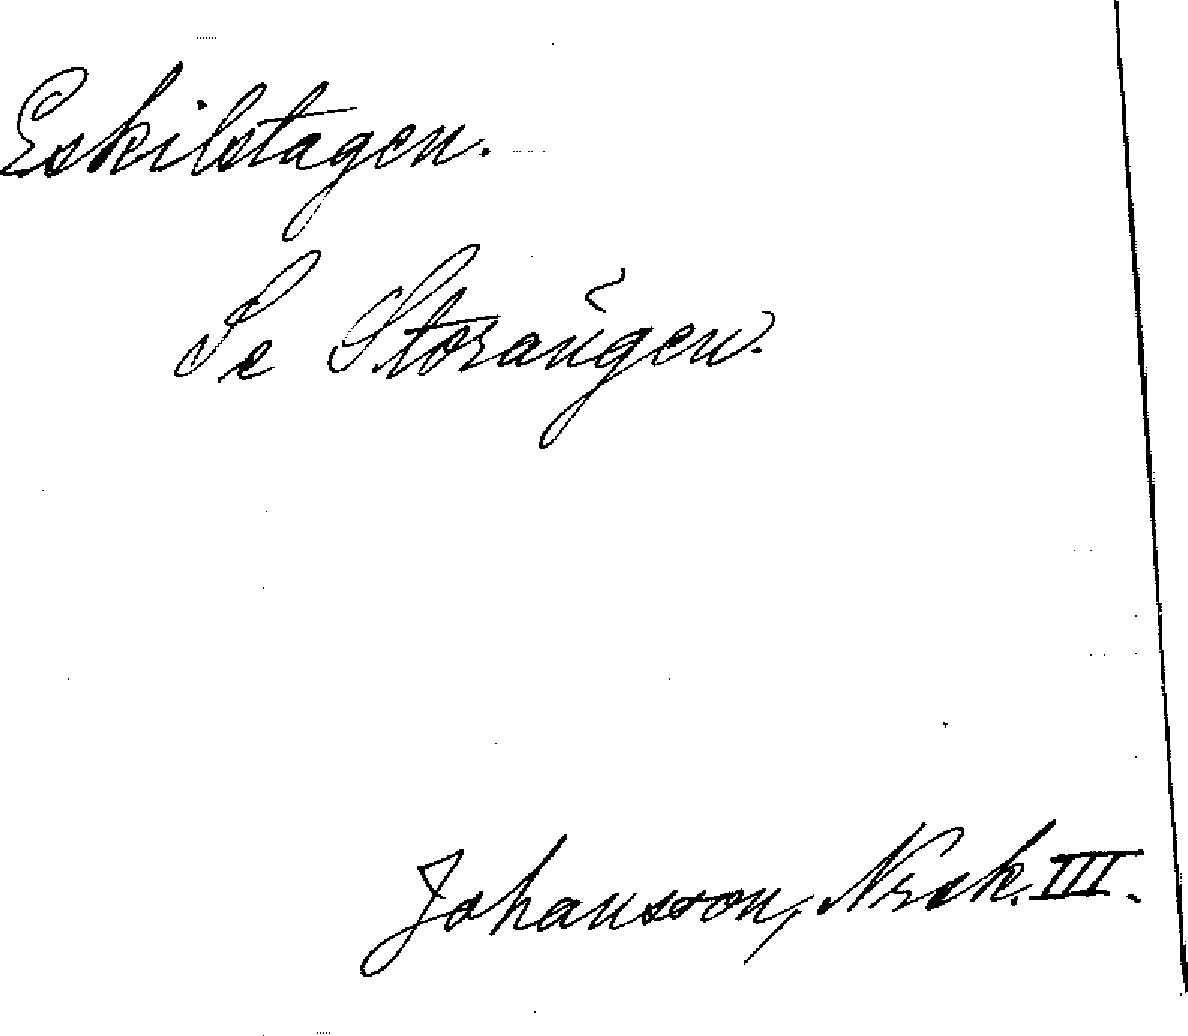 Eskilstagen.
Se Storängen.
Johansson, III.